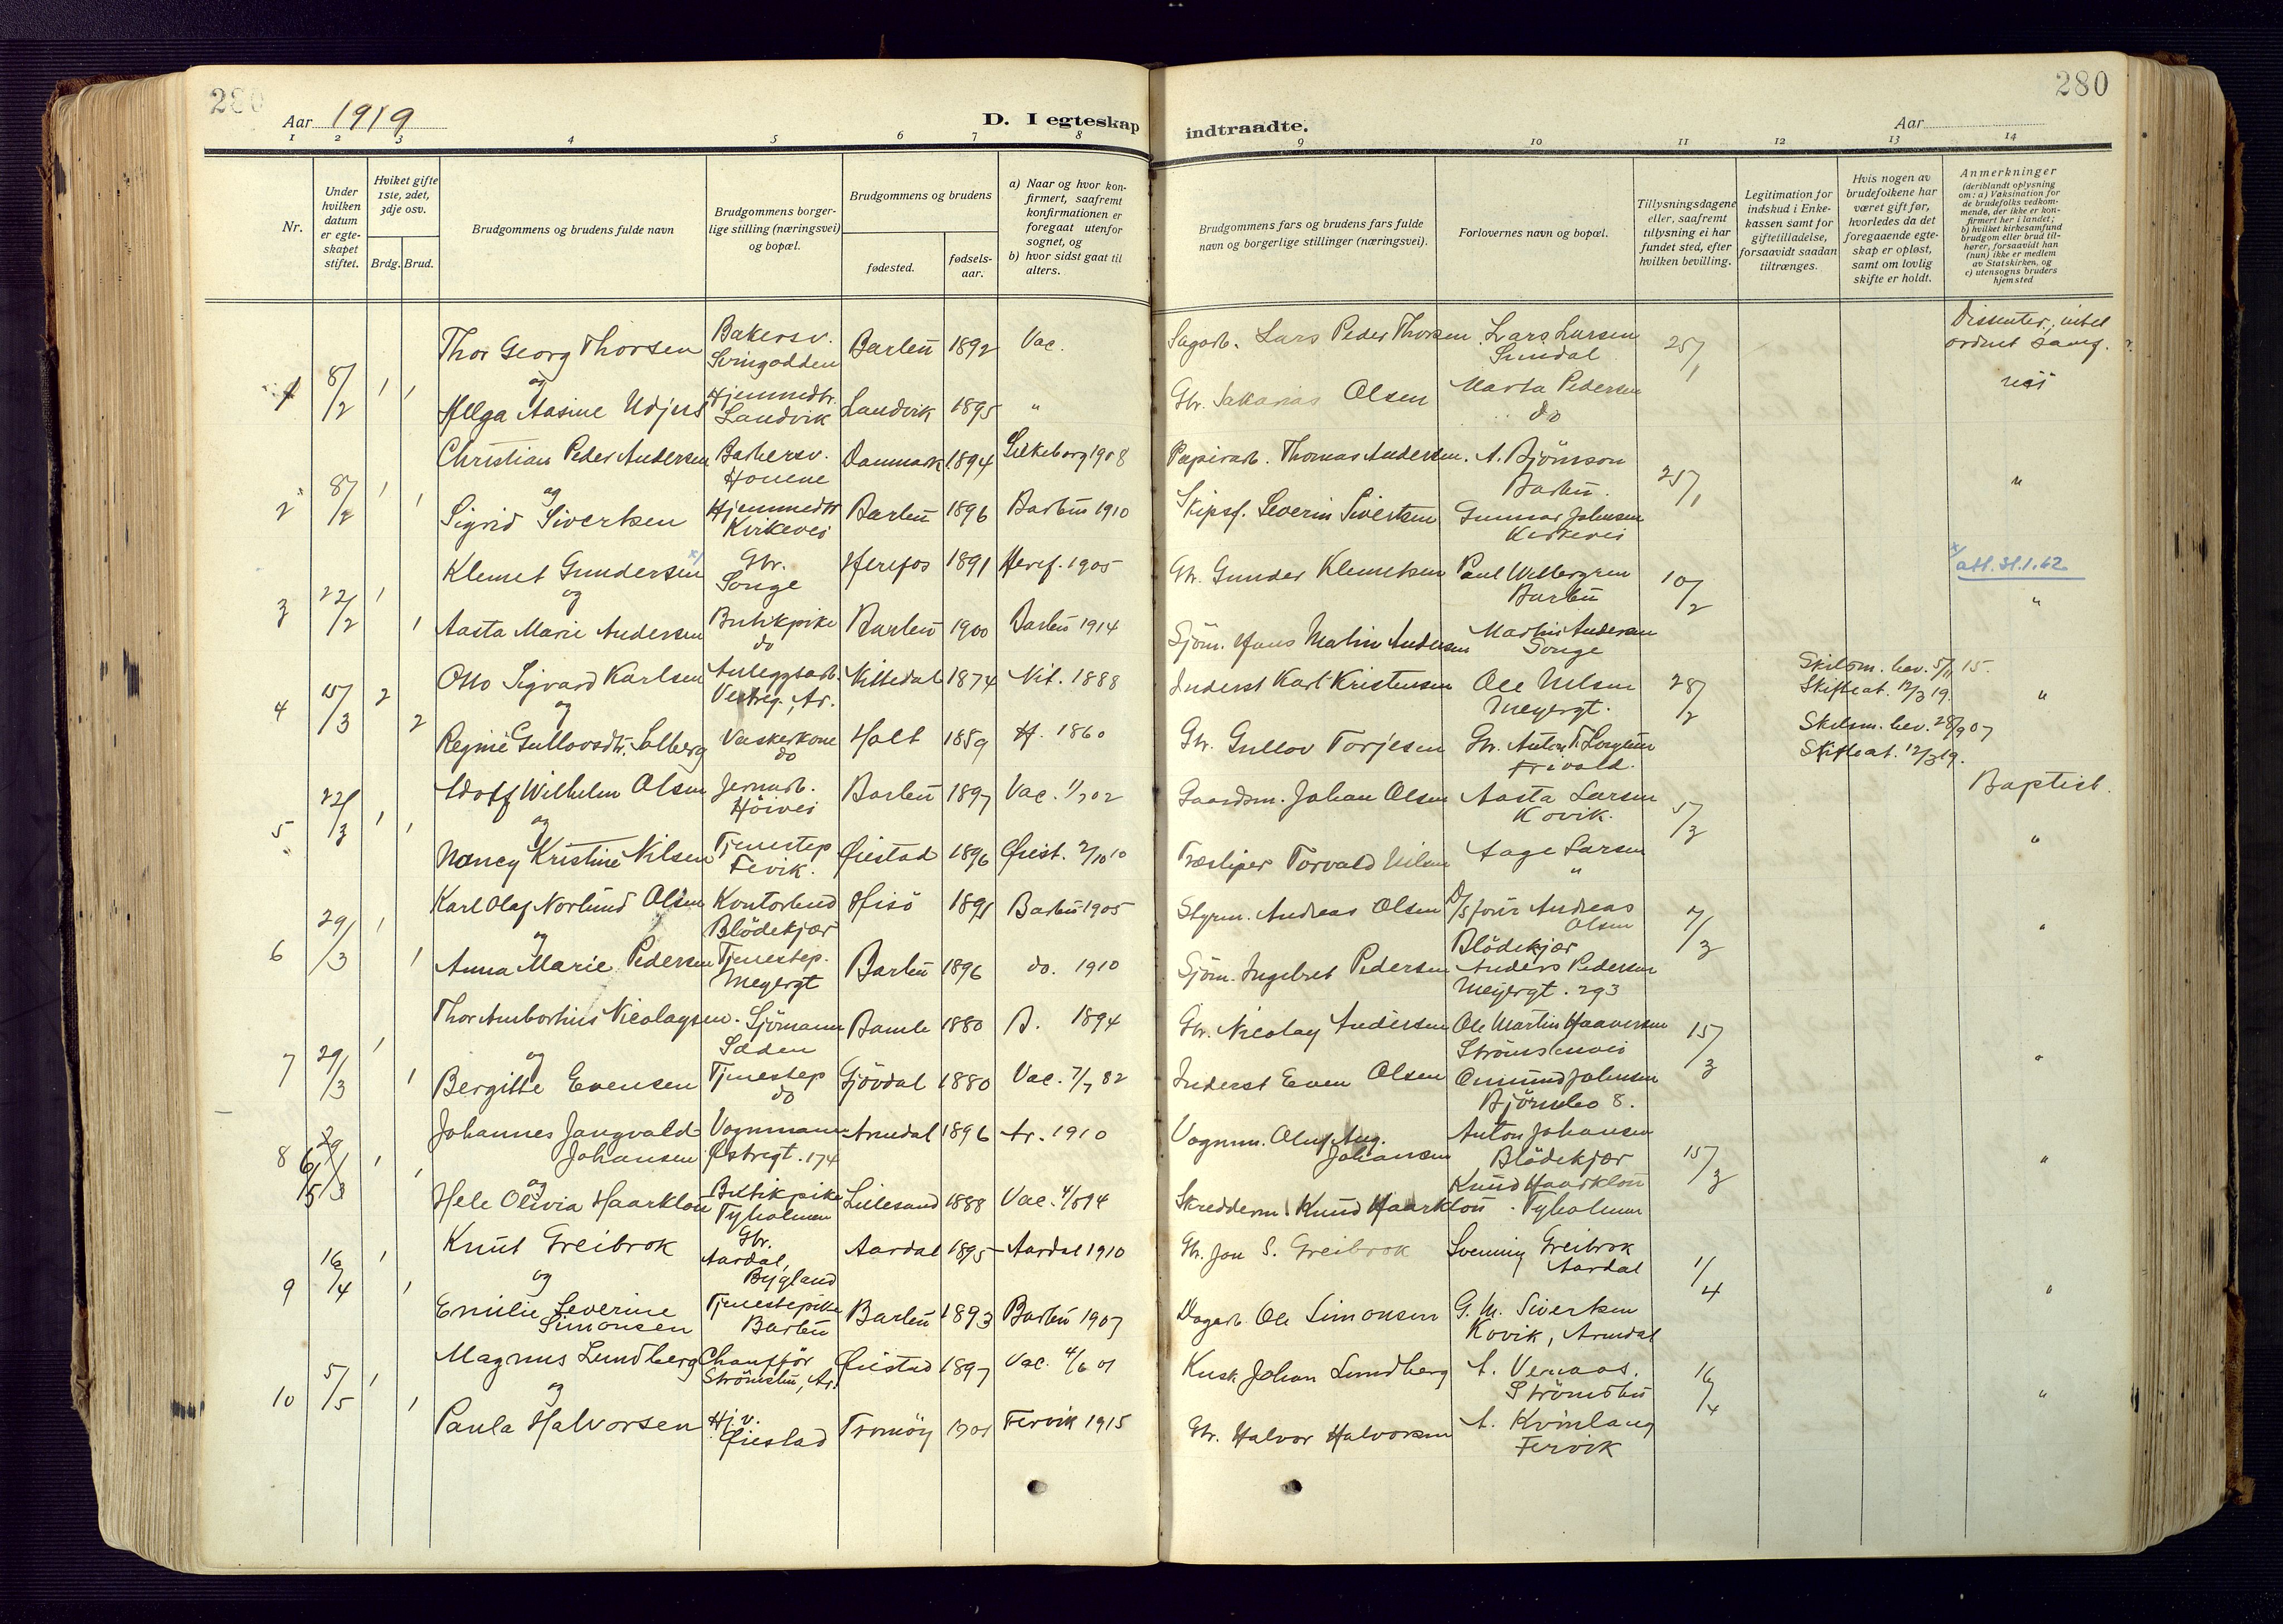 280
Aar 1919
D. I egteskap
indtraadte.
Aar
280
1 2 3 4 5 6 7 8
9 10 11 12 13 14
Nr.
Under hvilken datum er egteskapet stiftet.
Hvilket gifte 1ste, 2det, 3dje osv.
Brdg. Brud.
Brudgommens og brudens fulde navn
Brudgommens borgerlige stilling (næringsvei) og bopæl.
Brudgommens og brudens
fødested.
fødselsaar.
a) Naar og hvor konfirmert, saafremt konfirmationen er foregaat utenfor sognet, og
b) hvor sidst gaat til alters.
Brudgommens fars og brudens fars fulde navn og borgerlige stillinger (næringsvei).
Forlovernes navn og bopæl.
Tillysningsdagene eller, saafremt tillysning ei har fundet sted, efter hvilken bevilling.
Legitimation for indskud i Enkekassen samt for giftetilladelse, forsaavidt saadan tiltrænges.
Hvis nogen av brudefolkene har været gift før, hvorledes da det foregaaende egteskap er opløst, samt om lovlig skifte er holdt.
Anmerkninger
(deriblandt oplysning om: a) Vaksination for de brudefolks vedkommende, der ikke er konfirmert her i landet; b) hvilket kirkesamfund brudgom eller brud tilhører, forsaavidt han (hun) ikke er medlem av Statskirken, og c) utensogns bruders hjemsted
1 8/2 1 1
Thor Georg Thorsen Bakersv. Songodden Barbu 1892 Vac.
Sagarb. Lars Peder Thorsen Lars Larsen Sundal 25/1
Dissenter, intet ordnet samf.
og
Helga Aasine Udjus Hjemmedtr. Landvik Landvik 1895 "
Gbr. Sakarias Olsen Marta Pedersen do
nei
2 8/2 1 1
Christian Peder Andersen Barbersv. Houene Danmark 1894 Silkeborg 1908
Papirarb. Thomas Andersen. A. Björnson Barbu. 25/1
"
og
Sigrid Sivertsen Hjemmedtr Kirkevei Barbu 1896 Barbu 1910
Skipsf. Severin Sivertsen Gunnar Johnsen Kirkevei
3 22/2 1 1
Klemet Gundersen x) Gbr. Songe Herefos 1891 Heref. 1905
Gbr. Gunder Klemetsen Paul Wettergren Barbu 10/2
x) att. 31.1.62
"
og
Aasta Marie Andersen Butikpike do Barbu 1900 Barbu 1914
Sjöm. Hans Martin Andersen Martin Andersen Songe
4 15/3 2 2
Otto Sigvard Karlsen Anleggsarb. Vestreg., Ar. Nittedal 1874 Nit. 1888
Inderst Karl Kristensen Ole Nilsen Meyergt. 28/2
Skilsm. bev. 5/11 15.
Skifteat. 12/3 19.
"
og
Regine Gullovsdtr. Solberg Vaskerkone do Holt 1859 H. 1860
Gbr. Gullov Torjesen Gbr. Anton T. Longum Frivold.
Skilsm. bev. 28/9 07
Skifteat. 12/3 19.
5 22/3 1 1
Adolf Wilhelm Olsen Jernarb. Höivei Barbu 1897 Vac. 1/7 02
Gaardsm. Johan Olsen Aasta Larsen Kovik. 5/3
Baptist.
og
Nancy Kristine Nilsen Tjenestep Fevik. Øiestad 1896 Øiest. 2/10 10
Træsliper Torvald Nilsen Aage Larsen "
"
6 29/3 1 1
Karl Olaf Norlund Olsen Kontorbud Blödekjær Hisö 1891 Barbu 1905
Styrm. Andreas Olsen Andreas Olsen Blödekjær 7/3
"
og
Anna Marie Pedersen Tjenestep. Meyergt Barbu 1896 do. 1910
Sjöm. Ingebret Pedersen Anders Pedersen Meyergt. 293
7 29/3 1 1
Thor Ambortius Nicolaysen. Sjömann Sæden Bamle 1880 B. 1894
Gbr. Nicolay Andersen Ole Martin Haaversen Strömsbuvei 15/3
og
Bergitte Evensen Tjenestep do Gjövdal 1880 Vac. 7/7 82
Inderst Even Olsen Omund Johnsen Björnebo 8.
"
8 29/3 6/5 1 1
Johannes Jangvald Johansen Vognmann Østregt. 174 Arendal 1896 Ar. 1910
Vognm. Oluf Aug. Johansen Anton Johansen Blödekjær 15/3
"
og
Hele Olivia Haarklou Butikpike Tyholmen Lillesand 1888 Vac. 4/8 94
Skredderm. Knud Haarklou Knud Haarklou. Tyholmen
9 16/4 1 1
Knut Greibrok Gbr. Aardal, Bygland Aardal 1895 Aardal 1910
Gbr. Jon S. Greibrok Svenning Greibrok Aardal 1/4
og
Emilie Severine Simonsen Tjenestepike Barbu Barbu 1893 Barbu 1907
Dagarb. Ole Simonsen G. M. Sivertsen Kovik, Arendal
"
10 5/5 1 1
Magnus Lundberg Chauffør Strömsbu, Ar. Øiestad 1897 Vac. 4/6 01
Kusk Johan Lundberg A. Vernaas. Strömsbu 16/4
og
Paula Halvorsen Hj. v. Øiestad Tromöy 1901 Fervik 1915
Gbr. Halvor Halvorsen A. Kvinlaug Fervik
"